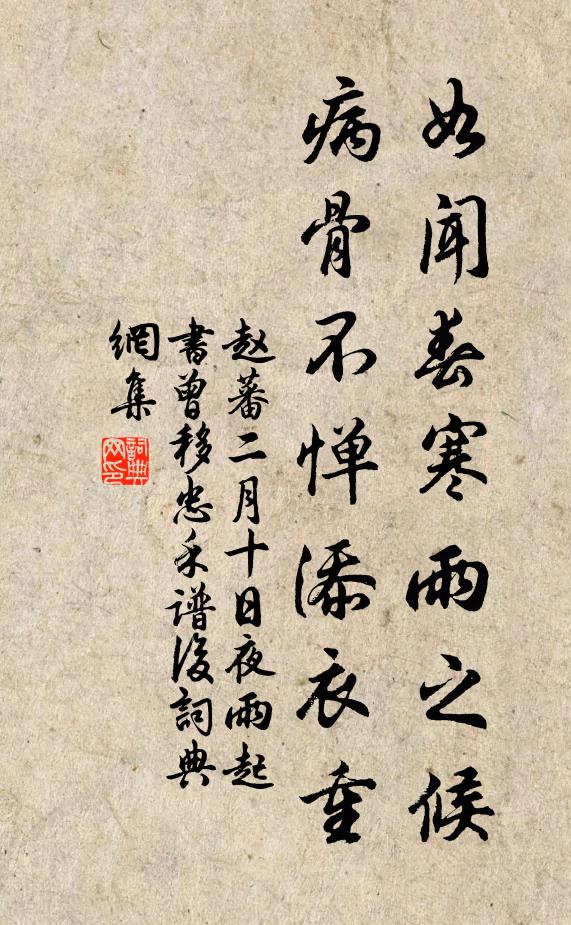 如闻春寒雨之候
病骨不惮添衣重
赵蕃二月十日夜雨起
書曾移忠禾谱後詞典
網集
詞典网印